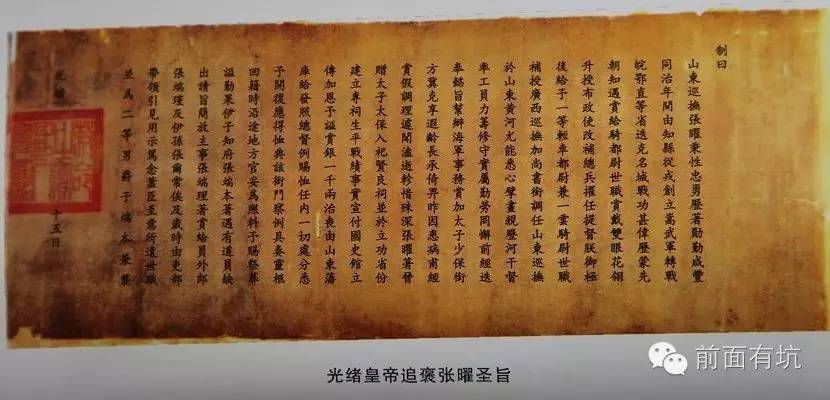 制曰
山東巡撫張曜秉性忠勇歷著勛勤咸豐
同治年間由知縣從戎創立嵩武軍轉戰
皖鄂直等省迭克名城戰功甚偉歷蒙先
朝知遇賞給騎都尉世職賞戴雙眼花翎
升授布政使改補總兵擢任提督朕御極
後給予一等輕車都尉兼一雲騎尉世職
補授廣西巡撫加尚書銜調任山東巡撫
於山東黃河尤能悉心擘畫親歷河干督
率工員力籌修守實屬勤勞罔懈前經迭
奉懿旨幫辦海軍事務賞加太子少保銜
方冀克享遐齡長承倚畀昨因患病甫經
賞假調理遽聞溘逝軫惜殊深張曜著晉
贈太子太保入祀賢良祠並於立功省份
建立專祠生平戰績事實宣付國史館立
傳加恩予謚賞銀一千兩治喪由山東藩
庫給發照總督例賜恤任內一切處分悉
予開復應得恤典該衙門察例具奏靈柩
回籍時沿途地方官妥為照料予賜祭葬
謚勤果伊子知府張端本著遇有道員缺
出請旨簡放主事張端理著賞給員外郎
張端瑾及伊孫張爾常俟及歲時由吏部
帶領引見用示篤念藎臣至意所遺世職
並為二等男爵子端本兼襲
光緒 十五日
光绪皇帝追褒张曜圣旨
前面有坑